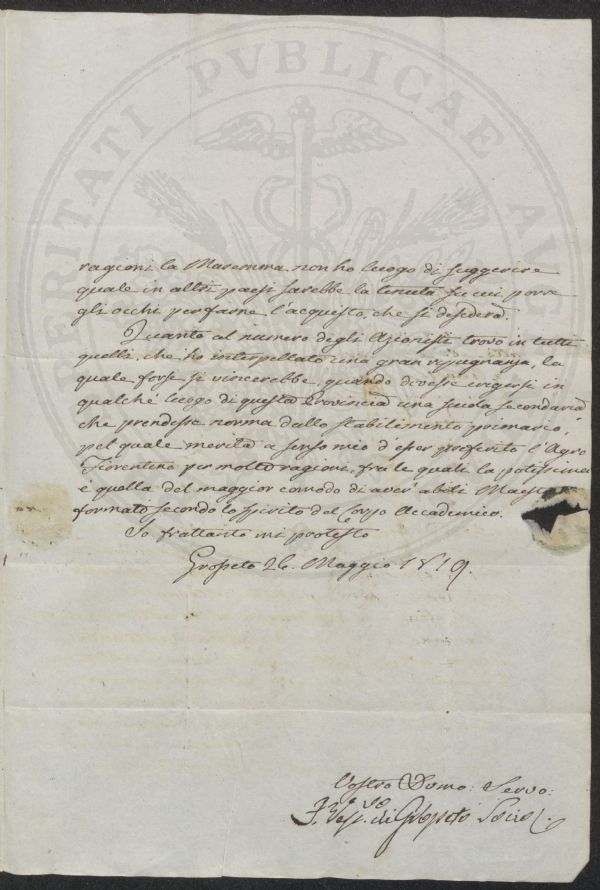 PROSPERITATI PVBLICAE AVG
ragioni la Maremma non ho luogo di suggerire
quale in altri paesi sarebbe la tenuta su cui porre
gli occhi per farne l'acquisto, che si desidera.
Quanto al numero degli Azionisti trovo in tutti
quelli, che ho interpellato una gran ripugnanza, la
quale forse si vincerebbe, quando dovesse erigersi in
qualche luogo di questa Provincia una scuola secondaria
che prendesse norma dallo stabilimento primario,
pel quale merita a senso mio d'esser preferito l'Agro
Fiorentino per molte ragioni, fra le quali la potissima
è quella del maggior comodo di aver abili Maestri
formato secondo lo spirito del Corpo Accademico.
Io frattanto mi protesto
Grosseto 26. Maggio 1819.
Vostro Dvmo: Servo:
F. Vesvo. di Grosseto Socio